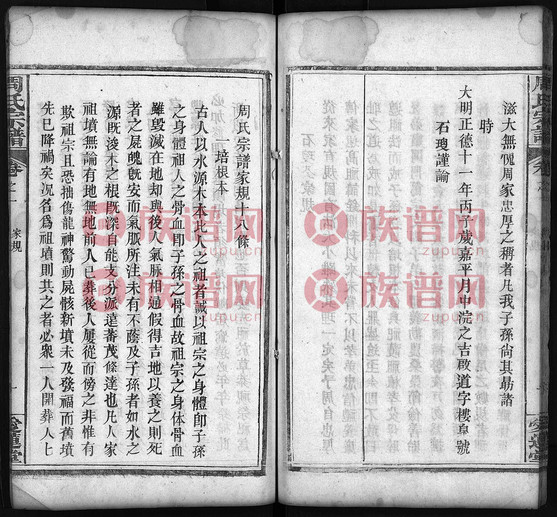 滋大無愧周家忠厚之稱者凡我子孫尚其勗諸
時
大明正德十一年丙子歲嘉平月中浣之吉啟道字樓阜號
石瓊謹諭
周氏宗譜
周氏宗譜家規十八條
一培根本
古人以水源木本比人之祖者誠以祖宗之身體卽子孫
之身體祖人之骨血卽子孫之骨血故祖宗之身体骨血
雖毀滅在地却與後人氣脈相通假得吉地以養之則死
者之屍魄旣安而氣脈所注未有不蔭及子孫者如水之
源旣浚木之根旣深自能支分派遠蕃茂條達也凡人家
祖墳無論有地無地前人已葬後人屢從而傍之非惟有
欺祖宗且恐拙傷龍神驚動屍骸新墳未及發福而舊墳
先已降禍矣況名為祖墳則共之者必衆一人開葬人上
周氏宗譜
卷之一
家規
愛蓮堂
族谱网
族谱网
族谱网
族谱网
族谱网
族谱网